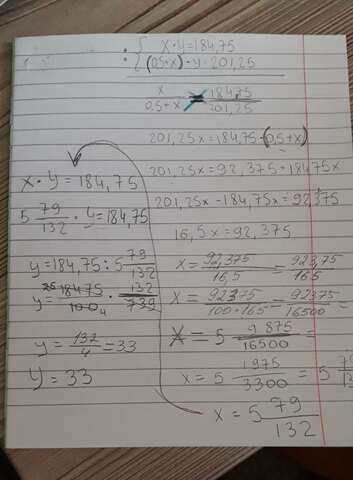 x·y=184,75
(0,5+x)·y=201,25
x/0,5+x = 184,75/201,25
201,25x=184,75·(0,5+x)
201,25x=92,375+184,75x
201,25x-184,75x=92,375
16,5x=92,375
x=92,375/16,5=923,75/165
x=92375/100·165=92375/16500=
x=5 9875/16500=
x=5 1975/3300=5
x=5 79/132
x·y=184,75
5 79/132·y=184,75
y=184,75:5 79/132
y=18475/100·132/739
y=132/4=33
y=33